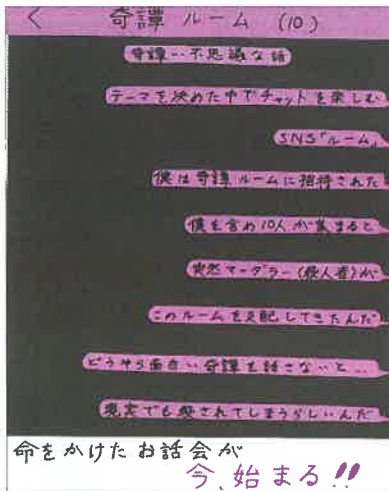 < 奇譚ルーム (10)
奇譚…不思議な話
テーマを決めた中でチャットを楽しむ
SNS「ルーム」
僕は奇譚ルームに招待された
僕を含め10人が集まると
突然マーダラー(殺人者)が
このルームを支配してきたんだ
どうやら面白い奇譚を話さないと…
現実でも殺されてしまうらしいんだ
命をかけたお話会が
今、始まる!!